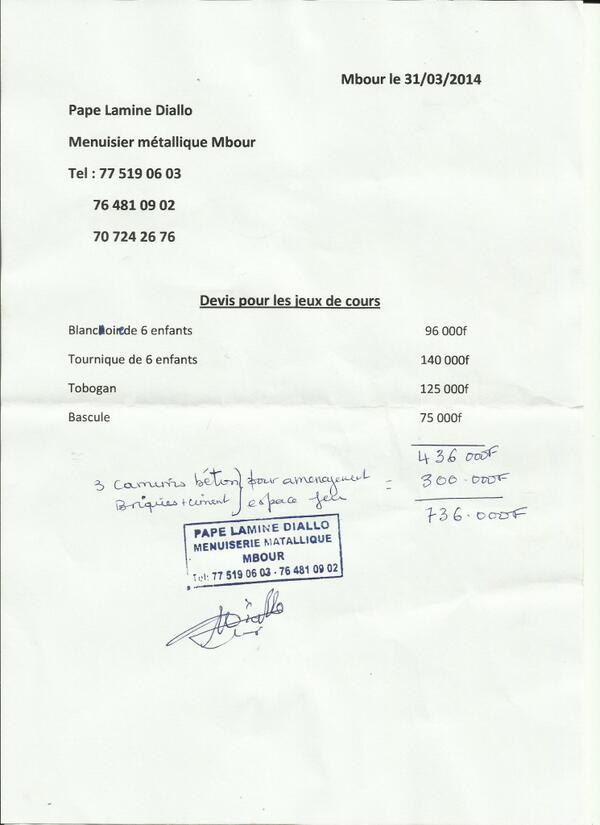 Mbour le 31/03/2014
Pape Lamine Diallo
Menuisier métallique Mbour
Tel : 77 519 06 03
76 481 09 02
70 724 26 76
Devis pour les jeux de cours
Blanchoirede 6 enfants 96 000f
Tournique de 6 enfants 140 000f
Tobogan 125 000f
Bascule 75 000f
436 000F
3 camions béton } pour amenagement = 300.000F
Briques + ciment } espace jeu
736.000F
PAPE LAMINE DIALLO
MENUISERIE MATALLIQUE
MBOUR
Tel: 77 519 06 03 - 76 481 09 02
Diallo